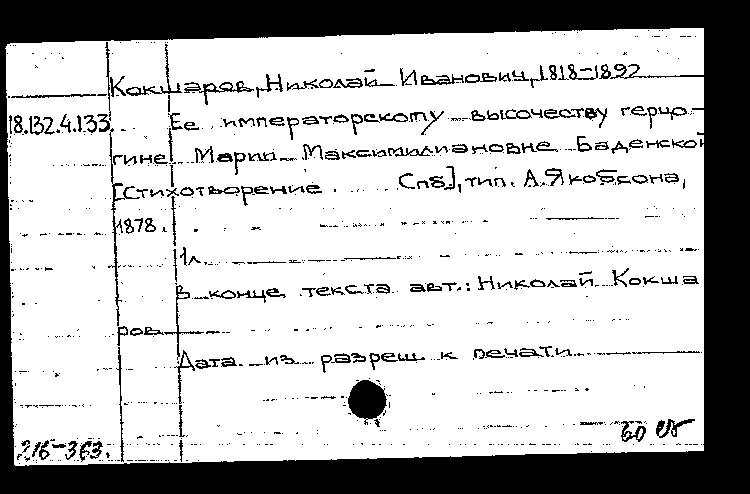 Кокшаров, Николай Иванович, 1818-1892
18.132.4.133
Ее императорскому высочеству герцо-
гине Марии Максимилиановне Баденской
[Стихотворение Спб], тип. А. Якобсона,
1878.
1л.
В конце текста авт.: Николай Кокша
ров
Дата из разреш. к печати
216-363.